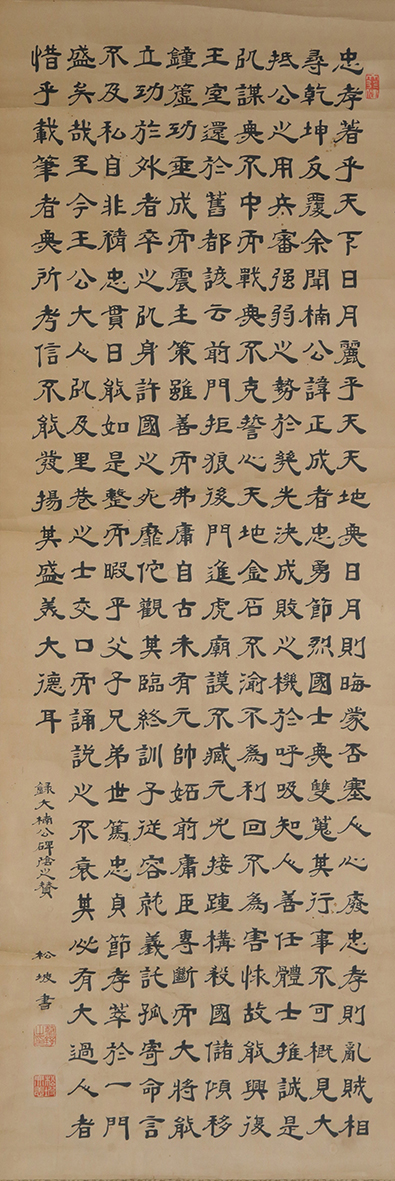 忠孝著乎天下日月麗乎天天地無日月則晦蒙否塞人心廢忠孝則亂賊相
尋乾坤反覆余聞楠公諱正成者忠勇節烈國士無雙蒐其行事不可概見大
抵公之用兵審强弱之勢於幾先決成敗之機於呼吸知人善任體士推誠是
以謀無不中而戰無不克誓心天地金石不渝不為利回不為害怵故能興復
王室還於舊都諺云前門拒狼後門進虎廟謨不臧元兇接踵構殺國儲傾移
鐘簴功垂成而震主策雖善而弗庸自古未有元帥妬前庸臣專斷而大將能
立功於外者卒之以身許國之死靡佗觀其臨終訓子從容就義託孤寄命言
不及私自非精忠貫日能如是整而暇乎父子兄弟世篤忠貞節孝萃於一門
盛矣哉至今王公大人以及里巷之士交口而誦說之不衰其必有大過人者
惜乎載筆者無所考信不能發揚其盛美大德耳
錄大楠公碑陰之贊
松坡書